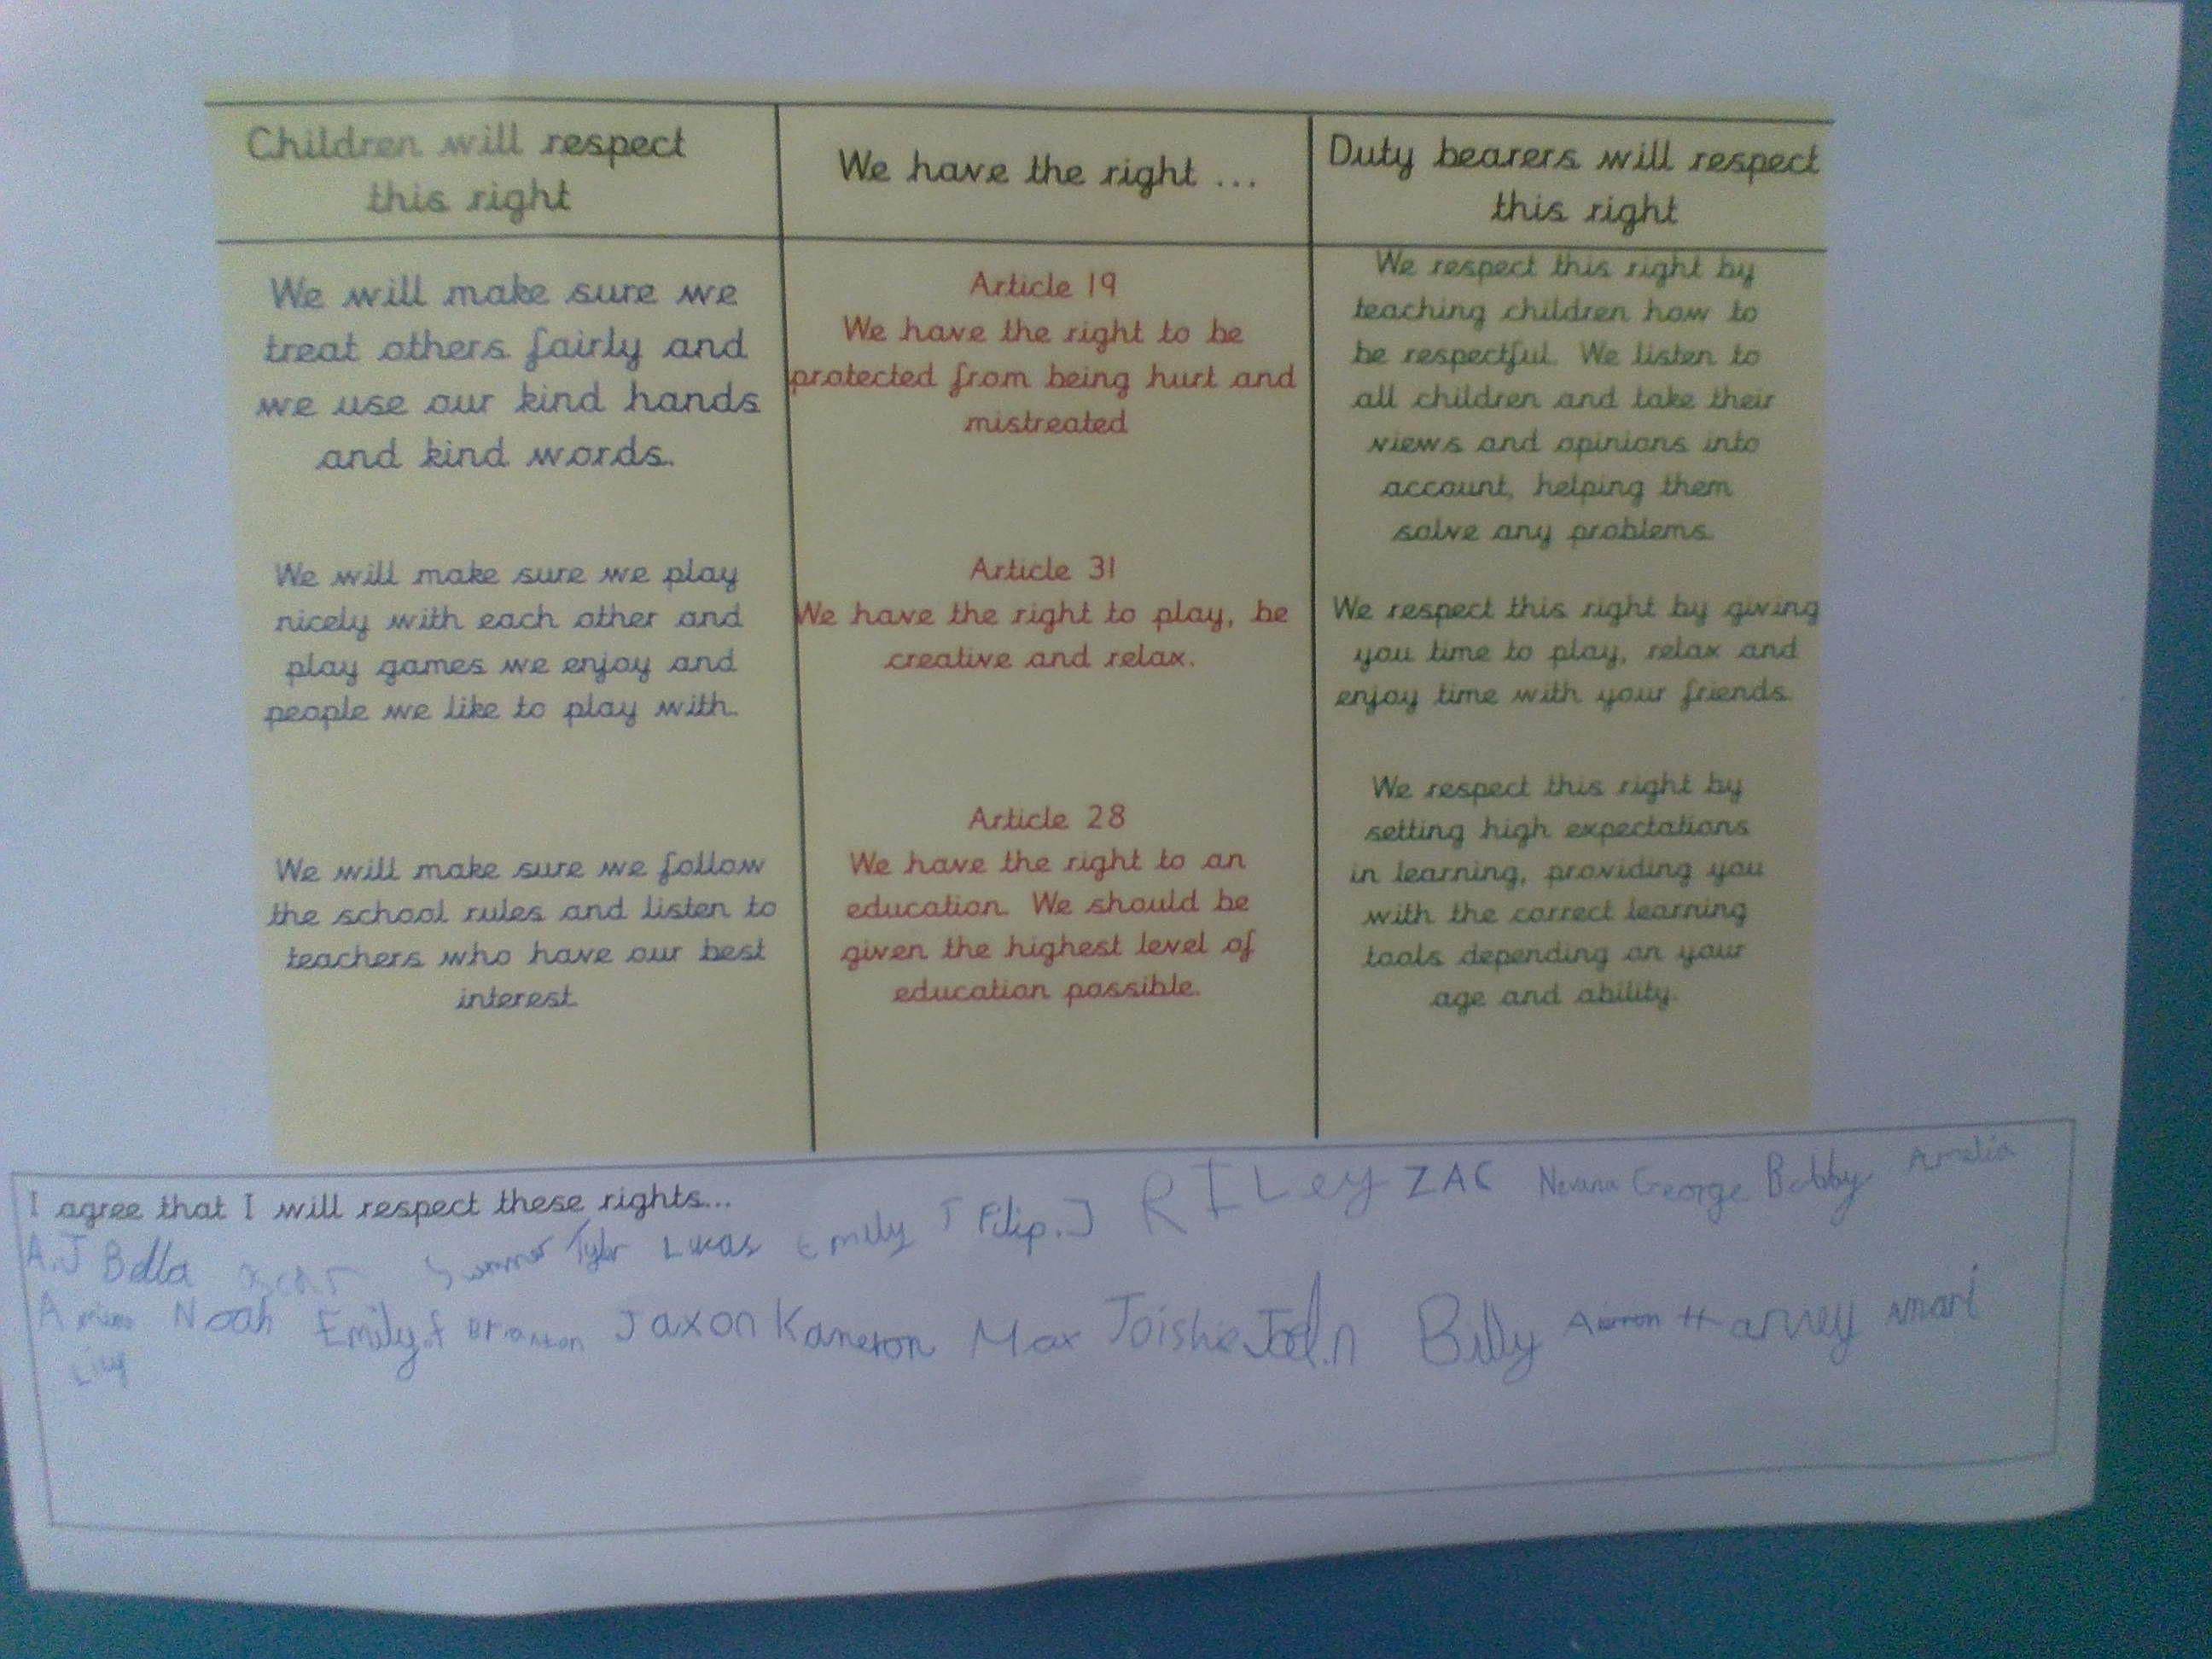 Children will respect
this right
We have the right ...
Duty bearers will respect
this right
We will make sure we
treat others fairly and
we use our kind hands
and kind words.
Article 19
We have the right to be
protected from being hurt and
mistreated
We respect this right by
teaching children how to
be respectful. We listen to
all children and take their
views and opinions into
account, helping them
solve any problems.
We will make sure we play
nicely with each other and
play games we enjoy and
people we like to play with.
Article 31
We have the right to play, be
creative and relax.
We respect this right by giving
you time to play, relax and
enjoy time with your friends.
We will make sure we follow
the school rules and listen to
teachers who have our best
interest.
Article 28
We have the right to an
education. We should be
given the highest level of
education possible.
We respect this right by
setting high expectations
in learning, providing you
with the correct learning
tools depending on your
age and ability.
I agree that I will respect these rights...
RILey ZAC George Bobby Amelia
A.J Bella Summer Tyler Lucas Emily J Filip.J
Noah Emily.f Jaxon Kameron Max Billy Harvey Amari
Lily